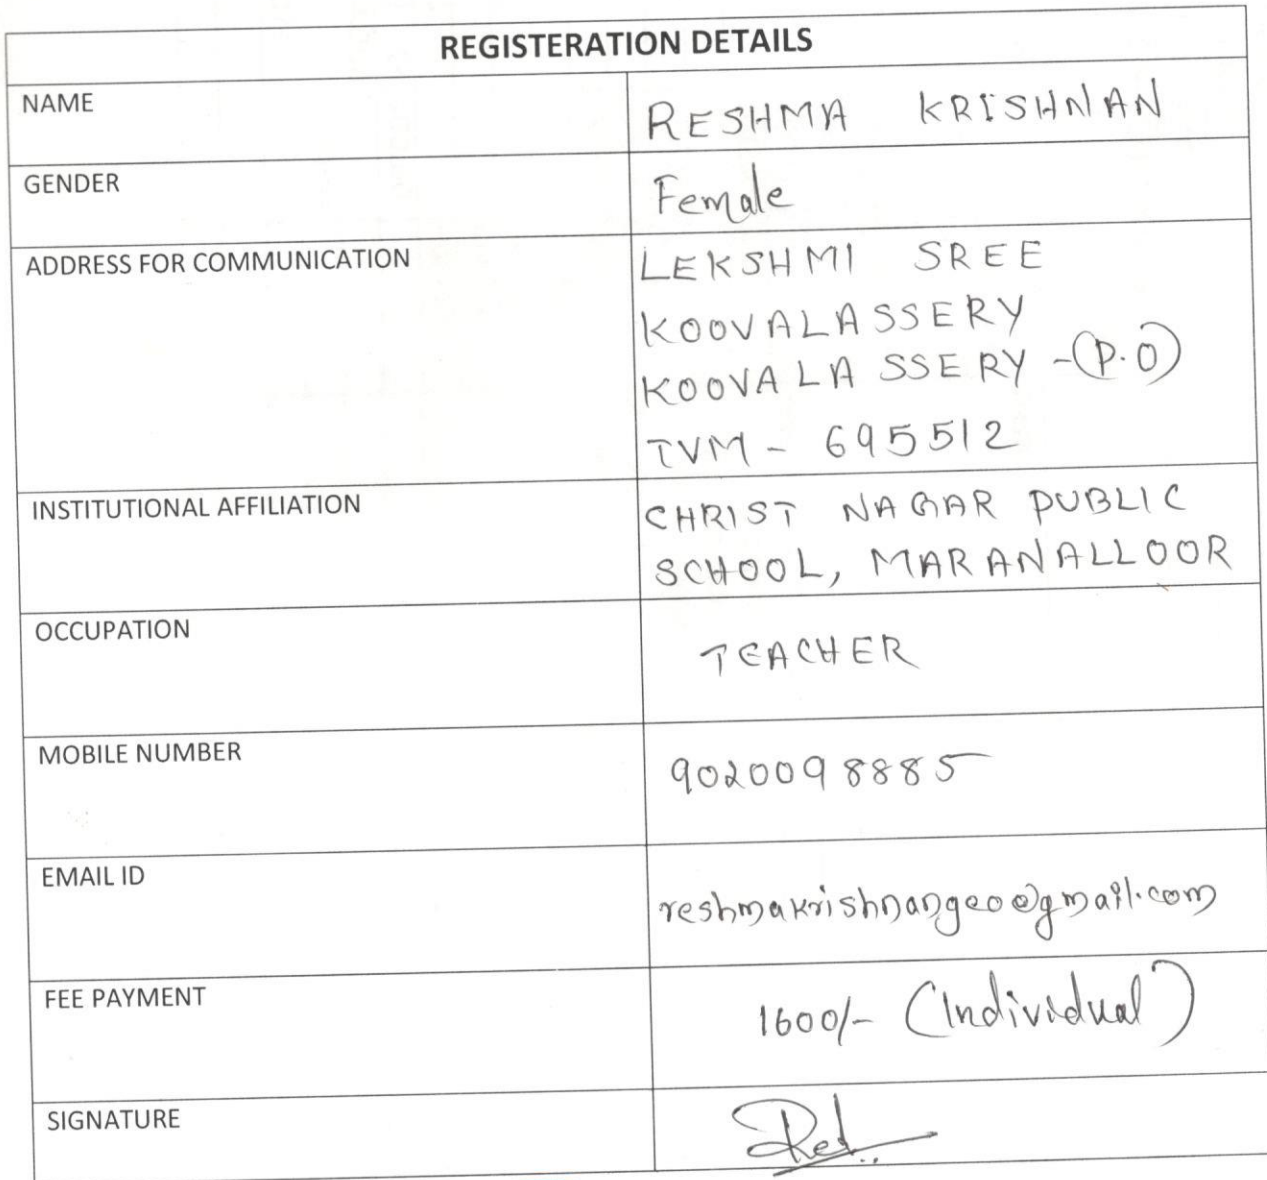 REGISTERATION DETAILS
NAME
RESHMA KRISHNAN
GENDER
Female
ADDRESS FOR COMMUNICATION
LEKSHMI SREE
KOOVALASSERY
KOOVALASSERY -(P.O)
TVM - 695512
INSTITUTIONAL AFFILIATION
CHRIST NAGAR PUBLIC
SCHOOL, MARANALLOOR
OCCUPATION
TEACHER
MOBILE NUMBER
9020098885
EMAIL ID
reshmakrishnangeo@gmail.com
FEE PAYMENT
1600/- (Individual)
SIGNATURE